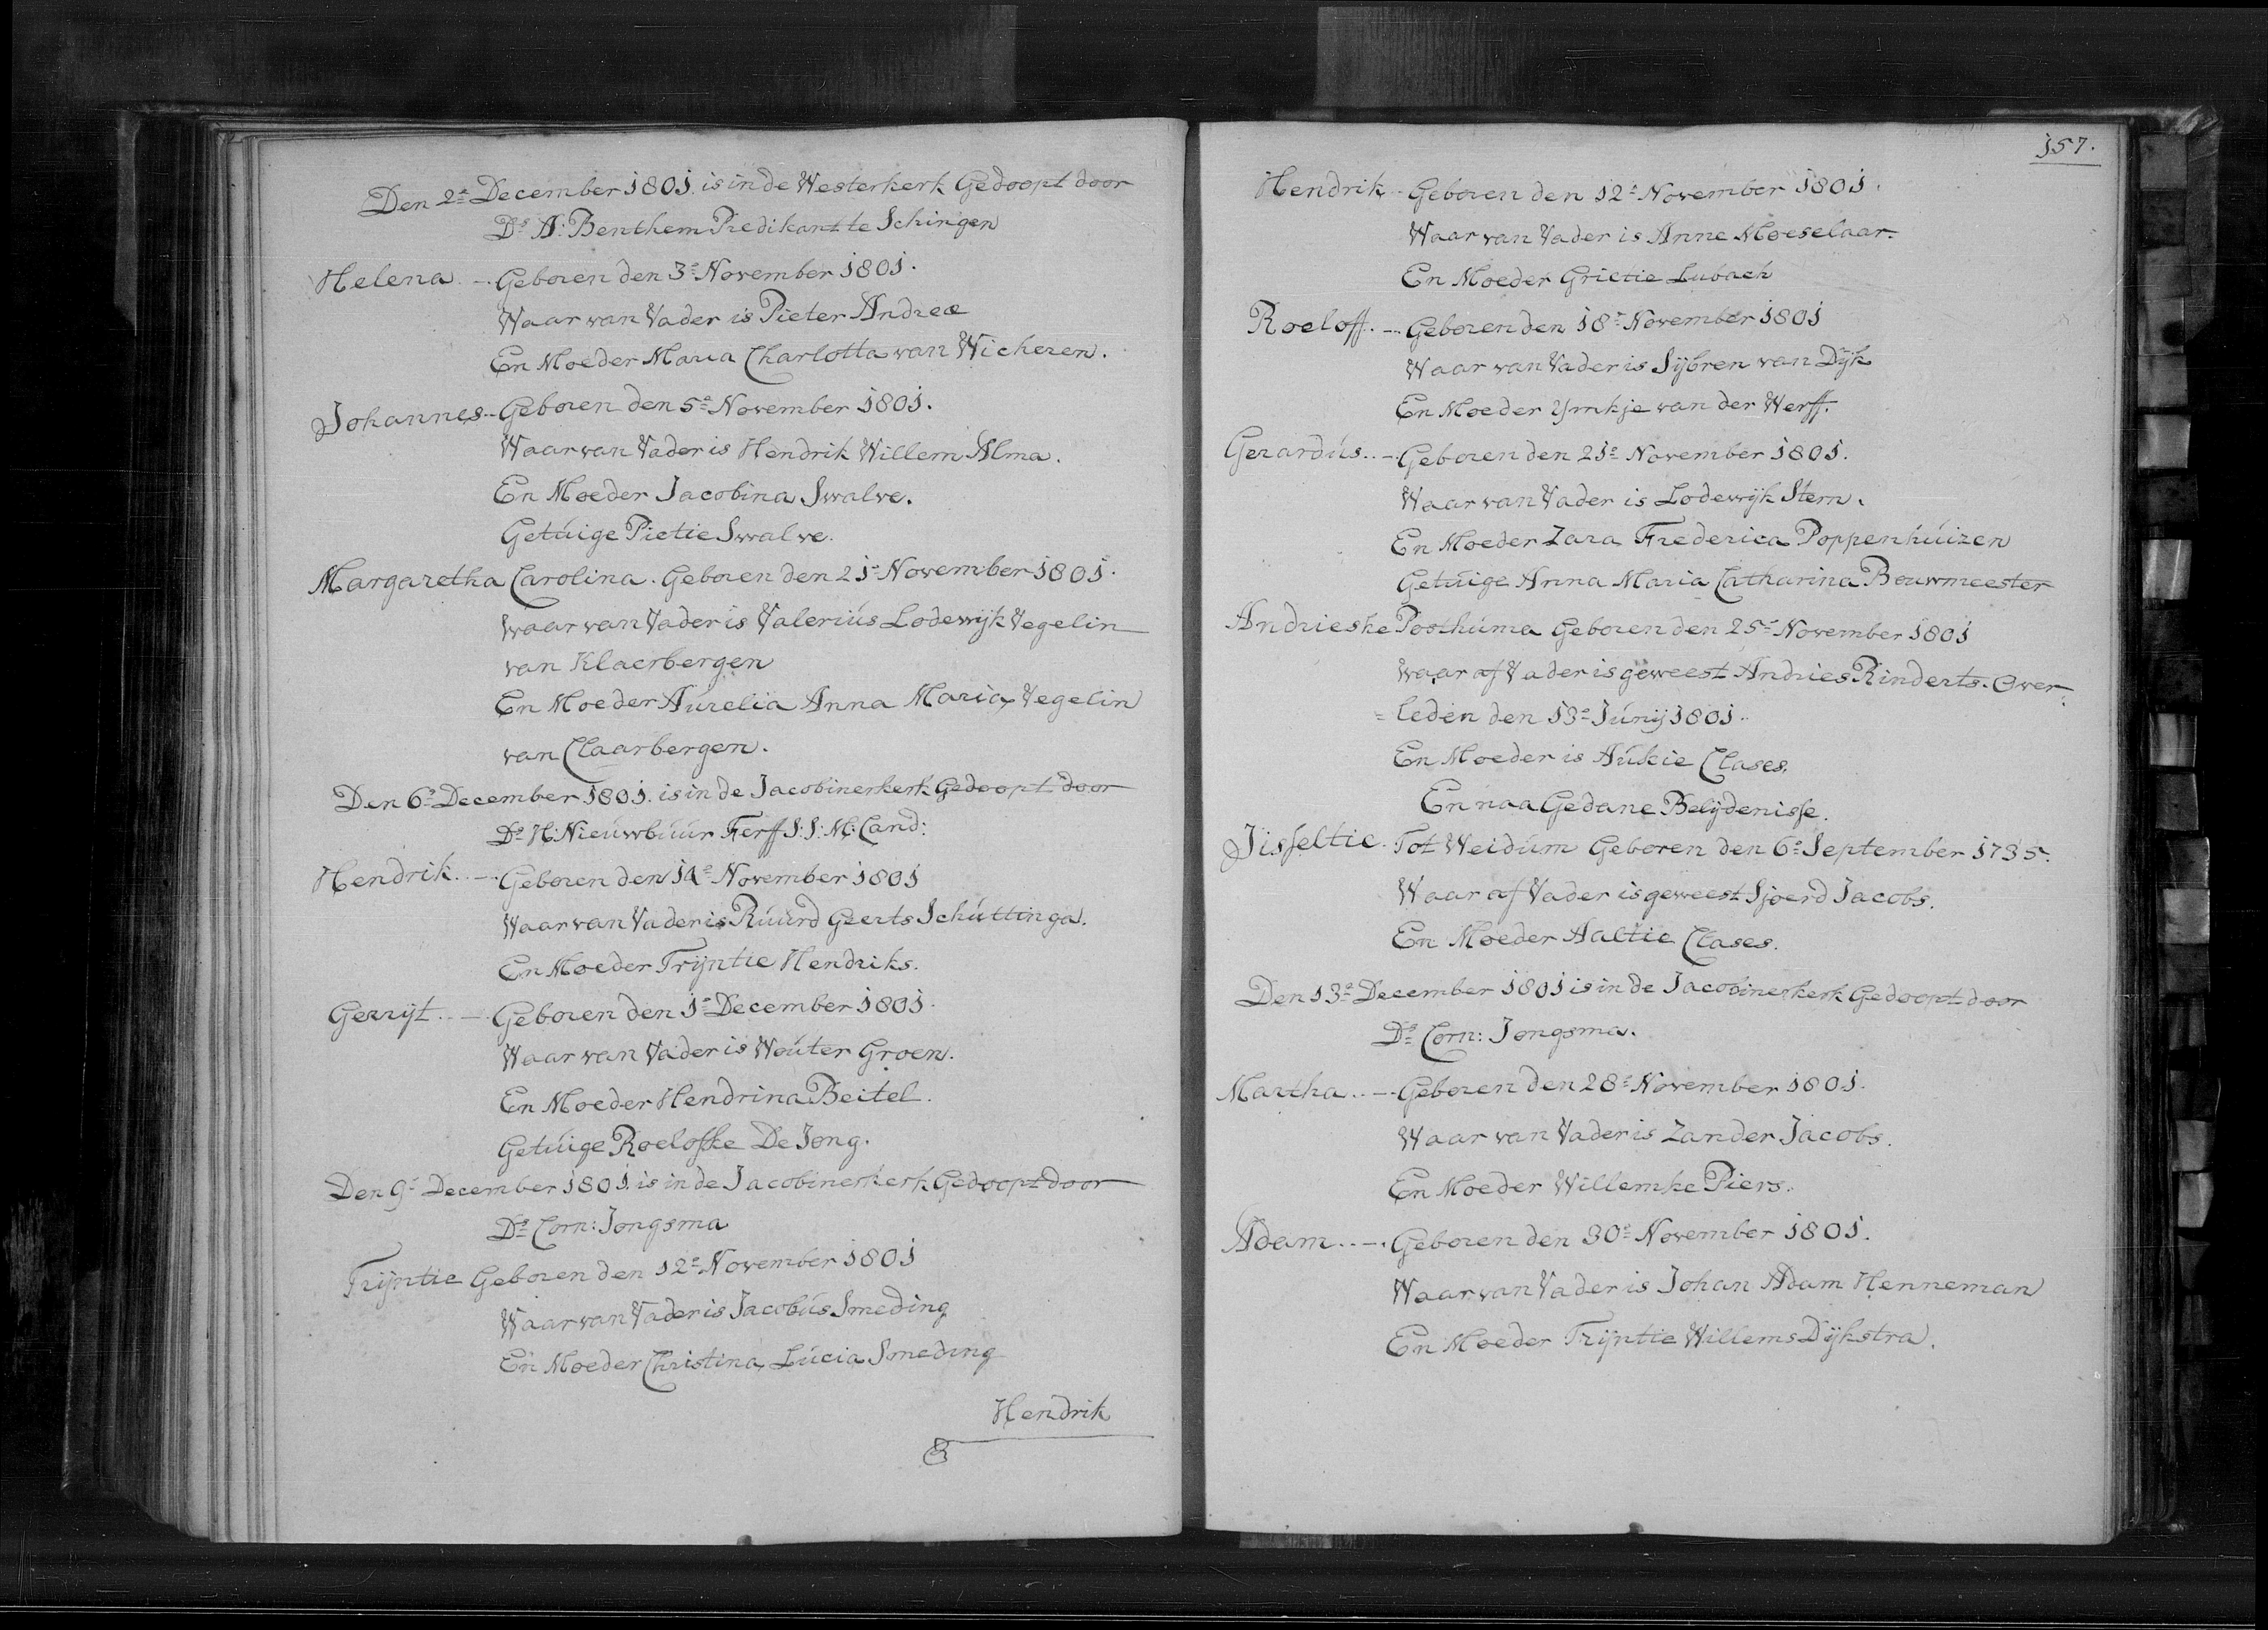 Den 2e December 1801. is in de Westerkerk Gedoopt door
Ds A: Benthem Predikant te Schingen
Helena -. Geboren den 3e November 1801.
Waar van Vader is Pieter Andreæ
En Moeder Maria Charlotta van Wicheren.
Johannes -. Geboren den 5e November 1801.
Waar van Vader is Hendrik Willem Alma.
En Moeder Jacobina Swalve.
Getúige Pietie Swalve.
Margaretha Carolina. Geboren den 21e November 1801.
waar van Vader is Valeriús Lodewijk Vegelin
van Klaerbergen
En Moeder Aúrelia Anna Maria Vegelin
van Claarbergen.
Den 6e December 1801. is in de Jacobinerkerk Gedoopt door
Ds H: Nieúwbúúr Ferff S: S: M: Cand:
Hendrik. -. Geboren den 14e November 1801
Waar van Vader is Rúúrd Geerts Schúttinga.
En Moeder Trijntie Hendriks.
Gerrijt. . -. Geboren den 1e December 1801.
Waar van Vader is Woúter Groen.
En Moeder Hendrina Beitel.
Getúige Roelofke De Jong.
Den 9e December 1801. is in de Jacobinerkerk Gedoopt door
Ds Corn: Jongsma
Trijntie Geboren den 12e November 1801
Waar van Vader is Jacobús Smeding
En Moeder Christina Lúcia Smeding
Hendrik
157.
Hendrik -. Geboren den 12e November 1801.
Waar van Vader is Anne Moeselaar.
En Moeder Grietie Lubach
Roeloff. -. Geboren den 18e November 1801
Waar van Vader is Sijbren van Dijk
En Moeder Ymkje van der Werff.
Gerardús. . -. Geboren den 21e November 1801.
Waar van Vader is Lodewijk Stern.
En Moeder Zara Frederica Poppenhúizen
Getúige Anna Maria Catharina Bouwmeester
Andrieske Posthúma Geboren den 25e November 1801
waar af Vader is geweest Andries Rinderts. Over-
= leden den 13e Júnij 1801.
En Moeder is Aúkie Clases.
En naa Gedane Belijdenisse.
Jisseltie. Tot Weidúm Geboren den 6e September 1735.
Waar af Vader is geweest Sjoerd Jacobs.
En Moeder Aaltie Clases.
Den 13e December 1801 is in de Jacobinerkerk Gedoopt door
Ds Corn: Jongsma.
Martha. . -. Geboren den 28e November 1801.
Waar van Vader is Zander Jacobs.
En Moeder Willemke Piers.
Adam. . -. Geboren den 30e November 1801.
Waar van Vader is Johan Adam Henneman
En Moeder Trijntie Willems Dijkstra.